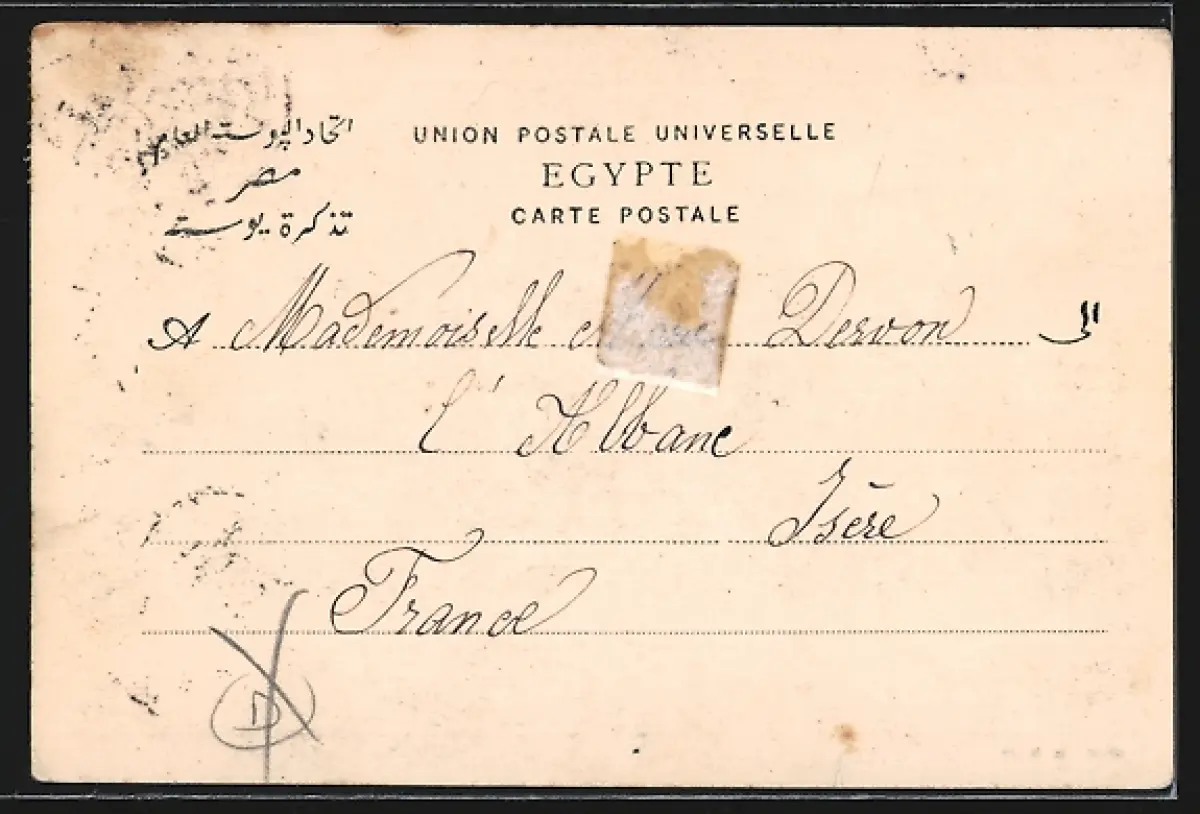 اتحاد البوسته العامه
مصر
تذكرة بوسته
UNION POSTALE UNIVERSELLE
EGYPTE
CARTE POSTALE
A Mademoiselle Dervon الى
L'Albane
Isère
France
D